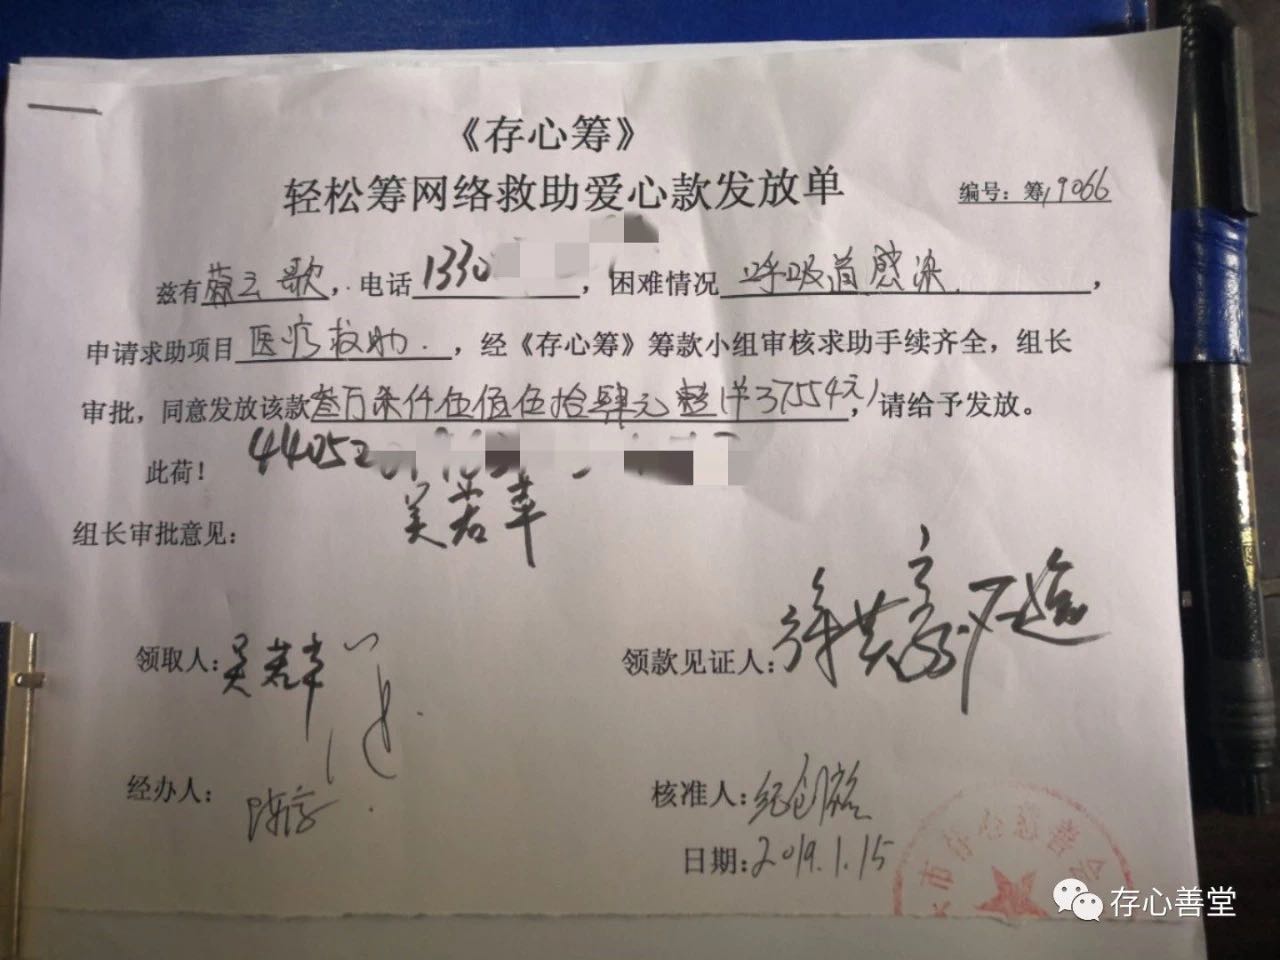 《存心筹》
轻松筹网络救助爱心款发放单
编号：筹19066
兹有蔡云歌，电话1330，困难情况呼吸道感染，
申请求助项目医疗救助，经《存心筹》筹款小组审核求助手续齐全，组长
审批，同意发放该款叁万柒仟伍佰伍拾肆元整（￥37554元），请给予发放。
此荷！
44052
组长审批意见：
领取人：
领款见证人：
经办人：
核准人：
日期：2019.1.15
市存心慈善会
存心善堂